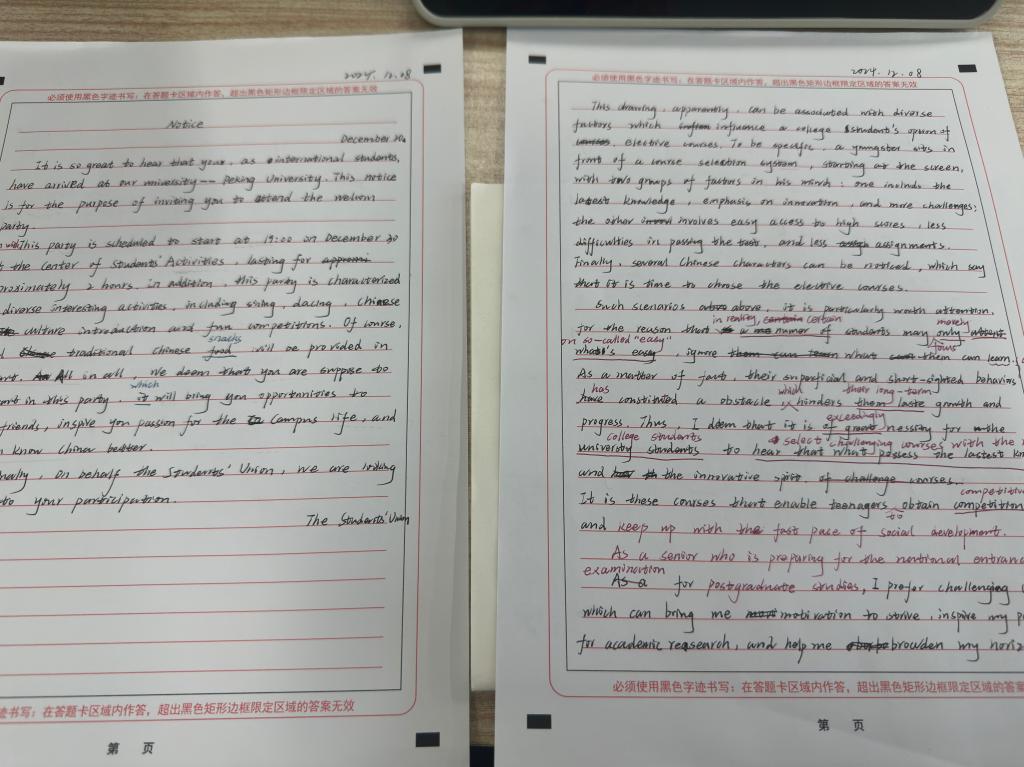 2024.12.08
必须使用黑色字迹书写：在答题卡区域内作答，超出黑色矩形边框限定区域的答案无效
Notice
December
It is so great to hear that your, as international students,
have arrived at our university — Peking University. This notice
is for the purpose of inviting you to attend the welcom
party.
This party is scheduled to start at 19:00 on December 20
the Center of Students' Activities, lasting for
proximately 2 hours. in addition, this party is characterized
diverse interesting activities, including sizing, dacing, Chinese
culture introduction and fun competitions. Of course,
snacks
traditional Chinese food will be provided in
All in all, we deem that you are suppose to
which
in this party. it will bring you opportunities to
friends, inspire you passion for the campus life, and
know China better.
nally, on behalf the Students' Union, we are
to your participation.
The Students' Union
迹书写：在答题卡区域内作答，超出黑色矩形边框限定区域的答案无效
第 页
2024.12.08
必须使用黑色字迹书写：在答题卡区域内作答，超出黑色矩形边框限定区域的答案无效
This drawing, apparently, can be associated with diverse
factors which influence a college student's option of
courses. elective courses. To be specific, a youngster sits in
front of a course selection system, starting at the screen,
with two groups of factors in his mind: one includs the
latest knowledge, emphasis on innovation, and more challenges;
the other involves easy access to high scores, less
difficulties in passing the test, and less assignments.
Finally, several Chinese characters can be noticed, which say
that it is time to choose the elective courses.
Such scenarios above, it is particularly worth attention.
in reality, certain certain merely
for the reason that a numer of students may only
on so-called "easy" focus
what's easy, ignore what them can learn.
As a matter of fact, their superficial and short-sighted behaviors
has which their long-term
have constituted a obstacle hinders them late growth and
exceedingly
progress. Thus, I deem that it is of great nessity for
college students select challenging courses with the
university students to hear that what possess the lastest
and the innovative spirit of challenge courses.
competitive
It is these courses that enable teenagers to obtain
and keep up with the fast pace of social development.
As a senior who is preparing for the national entranc
examination
As a for postgraduate studies, I prefer challenging
which can bring me motivation to strive, inspire my
for academic reqsearch, and help me browden my horiz
必须使用黑色字迹书写：在答题卡区域内作答，超出黑色矩形边框限定区域的答案
第 页